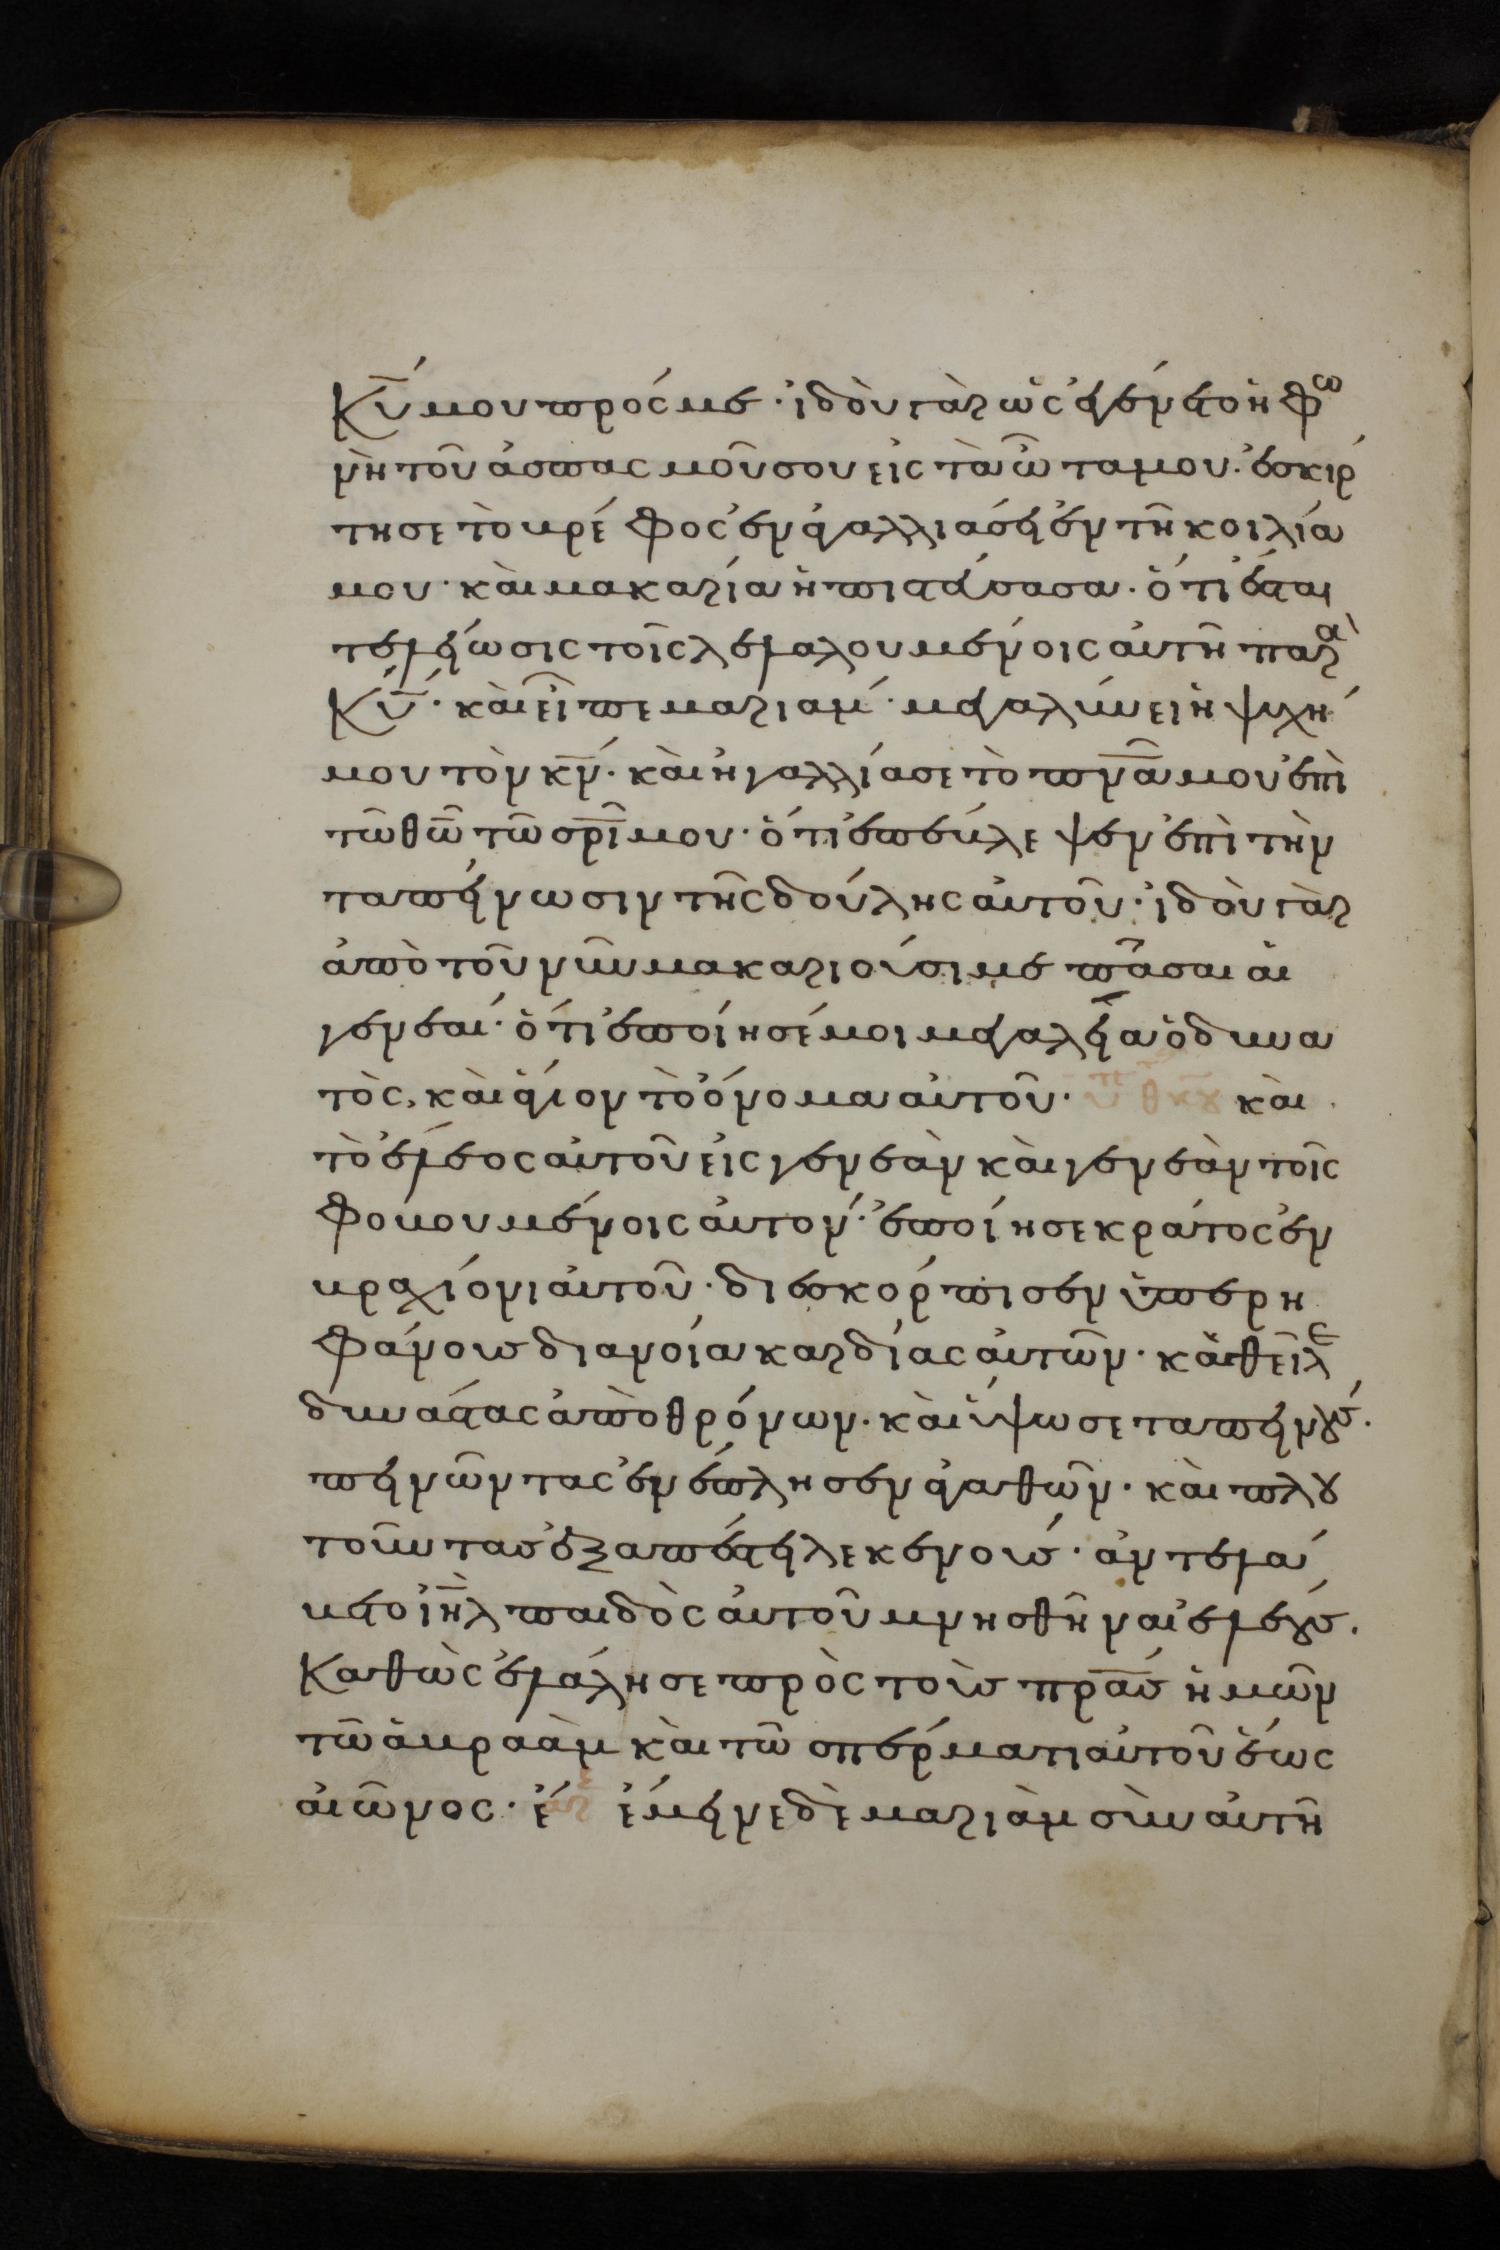 Κ̅υ̅ μου πρός με· ἰδοὺ γὰρ ὡς ἐγένετο ἡ φω
νὴ τοῦ ἀσπασμοῦ σου εἰς τὰ ὦτα μου· ἐσκίρ
τησε τὸ βρέφος ἐν ἀγαλλιάσει ἐν τῆ κοιλία
μου· καὶ μακαρία ἡ πιστεύσασα· ὅτι ἔσται
τελείωσις τοῖς λελαλουμένοις αὐτῆ παρὰ
Κ̅υ̅· καὶ εἶπε μαριάμ· μεγαλύνει ἡ ψυχή
μου τὸν κ̅ν̅· καὶ ἠγαλλίασε τὸ π̅ν̅α̅ μου ἐπὶ
τῶ θ̅ω̅ τῶ σ̅ρ̅ι̅ μου· ὅτι ἐπέβλεψεν ἐπὶ τὴν
ταπείνωσιν τῆς δούλης αὐτοῦ· ἰδοὺ γὰρ
ἀπὸ τοῦ νῦν μακαριούσι με πᾶσαι αἱ
γενεαί· ὅτι ἐποίησέ μοι μεγαλεῖα ὁ δυνα
τὸς, καὶ ἅγιον τὸ ὄνομα αὐτοῦ· καὶ
τὸ ἔλεος αὐτοῦ εἰς γενεὰν καὶ γενεὰν τοῖς
φοβουμένοις αὐτον· ἐποίησε κράτος ἐν
βραχίονι αὐτοῦ· διεσκόρπισεν ὑπερη
φάνους διανοία καρδίας αὐτῶν· καθεῖλε
δυνάστας ἀπὸ θρόνων· καὶ ὕψωσε ταπεινούς·
πεινῶντας ἐνέπλησεν ἀγαθῶν· καὶ πλου
τοῦντας ἐξαπέστειλε κενούς· ἀντελά
βετο ἰ̅η̅λ̅ παιδὸς αὐτοῦ μνησθῆναι ἐλέους.
Καθὼς ἐλάλησε πρὸς τοὺς π̅ρ̅α̅ς̅ ἡμῶν
τῶ ἀβραὰμ καὶ τῶ σπέρματι αὐτοῦ ἕως
αἰῶνος· ἔμεινε δὲ μαριὰμ σὺν αὐτῆ